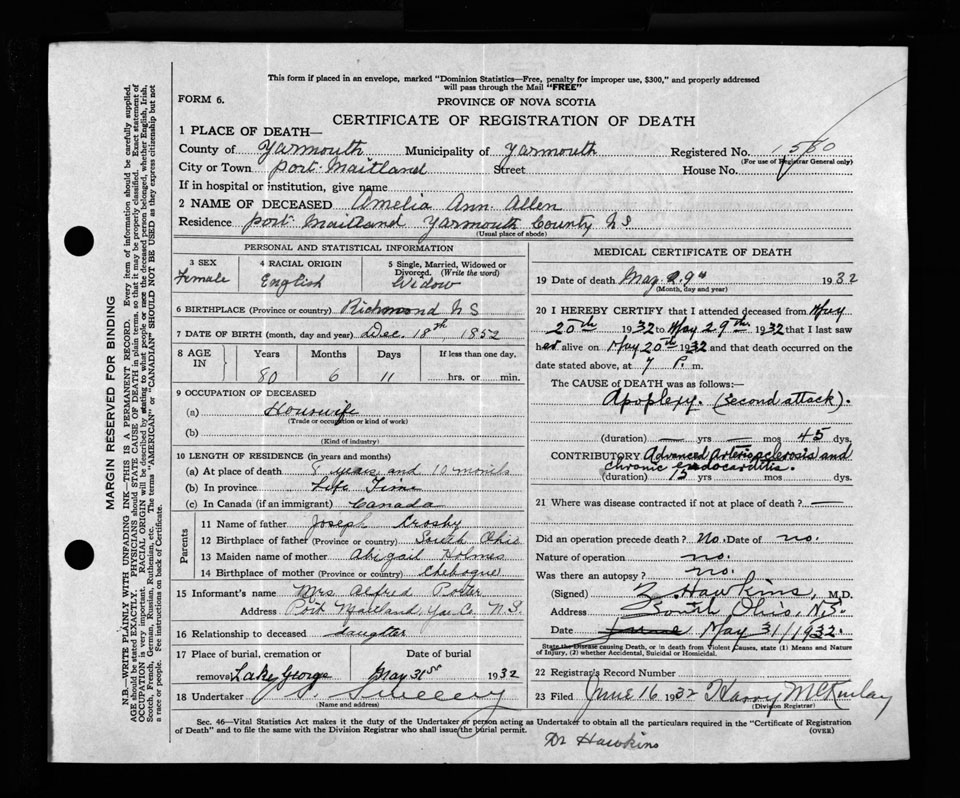 This form if placed in an envelope, marked "Dominion Statistics—Free, penalty for improper use, $300," and properly addressed
will pass through the Mail "FREE"
FORM 6.
PROVINCE OF NOVA SCOTIA
CERTIFICATE OF REGISTRATION OF DEATH
1 PLACE OF DEATH—
County of Yarmouth Municipality of Yarmouth Registered No.
(For use of Registrar General only)
City or Town Port Maitland Street House No.
If in hospital or institution, give name
2 NAME OF DECEASED Amelia Ann Allen
Residence Port Maitland Yarmouth County NS
(Usual place of abode)
PERSONAL AND STATISTICAL INFORMATION
3 SEX 4 RACIAL ORIGIN 5 Single, Married, Widowed or Divorced. (Write the word)
Female English Widow
6 BIRTHPLACE (Province or country) Richmond NS
7 DATE OF BIRTH (month, day and year) Dec. 18th 1852
8 AGE IN Years Months Days If less than one day.
80 6 11 hrs. or min.
9 OCCUPATION OF DECEASED
(a) Houswife
(Trade or occupation or kind of work)
(b)
(Kind of industry)
10 LENGTH OF RESIDENCE (in years and months)
(a) At place of death 8 years and 10 months
(b) In province Life Time
(c) In Canada (if an immigrant) Canada
Parents
11 Name of father Joseph Crosby
12 Birthplace of father (Province or country) South Ohio
13 Maiden name of mother Abigail Holmes
14 Birthplace of mother (Province or country) Chebogue
15 Informant's name Mrs Alfred Porter
Address Port Maitland, Yar. Co. N.S.
16 Relationship to deceased daughter
17 Place of burial, cremation or removal Date of burial
Lake George May 31st 1932
18 Undertaker
(Name and address)
MEDICAL CERTIFICATE OF DEATH
19 Date of death May 29th 1932
(Month, day and year)
20 I HEREBY CERTIFY that I attended deceased from May
20th 1932 to May 29th 1932 that I last saw
her alive on May 20th 1932 and that death occurred on the
date stated above, at 7 P. m.
The CAUSE of DEATH was as follows:—
Apoplexy. (Second attack).
(duration) — yrs — mos 45 dys.
CONTRIBUTORY Advanced Arteriosclerosis and
chronic endocarditis.
(duration) 15 yrs mos dys.
21 Where was disease contracted if not at place of death? —
Did an operation precede death? No. Date of no.
Nature of operation no.
Was there an autopsy? no.
(Signed) Z. Hawkins, M.D.
Address South Ohio, N.S.
Date June May 31/1932.
State the Disease causing Death, or in death from Violent Causes, state (1) Means and Nature
of Injury, (2) whether Accidental, Suicidal or Homicidal.
22 Registrar's Record Number
23 Filed June 16 1932 Harry McKinlay
(Division Registrar)
Sec. 46—Vital Statistics Act makes it the duty of the Undertaker or person acting as Undertaker to obtain all the particulars required in the "Certificate of Registration
of Death" and to file the same with the Division Registrar who shall issue the burial permit. (OVER)
Dr Hawkins
MARGIN RESERVED FOR BINDING
N.B.—WRITE PLAINLY WITH UNFADING INK—THIS IS A PERMANENT RECORD. Every item of information should be carefully supplied.
AGE should be stated EXACTLY. PHYSICIANS should STATE CAUSE OF DEATH in plain terms, so that it may be properly classified. Exact statement of
OCCUPATION is very important. RACIAL ORIGIN will be described by stating to what people or race the deceased person belonged, whether English, Irish,
Scotch, French, German, Russian, Ruthenian, etc. The terms "AMERICAN" or "CANADIAN" SHOULD NOT BE USED as they express citizenship but not
a race or people. See instructions on back of Certificate.